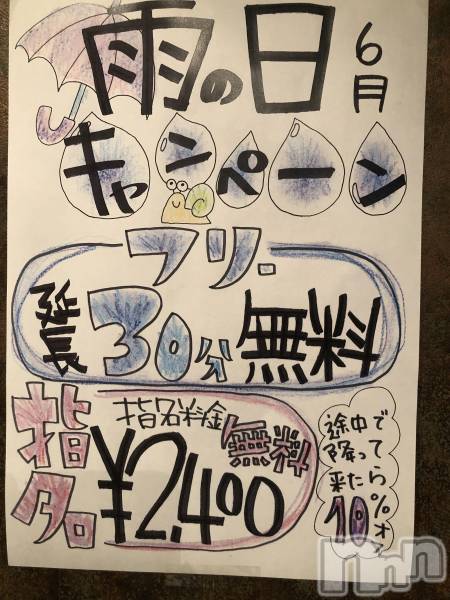 雨の日
6月
キャンペーン
フリー
延長30分無料
指名
指名料金
無料
¥2,400
途中で
降って
来たら
10%オフ